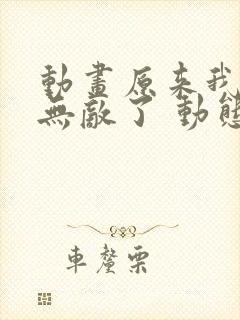 動畫原来我
無敵了 動態
車釐栗